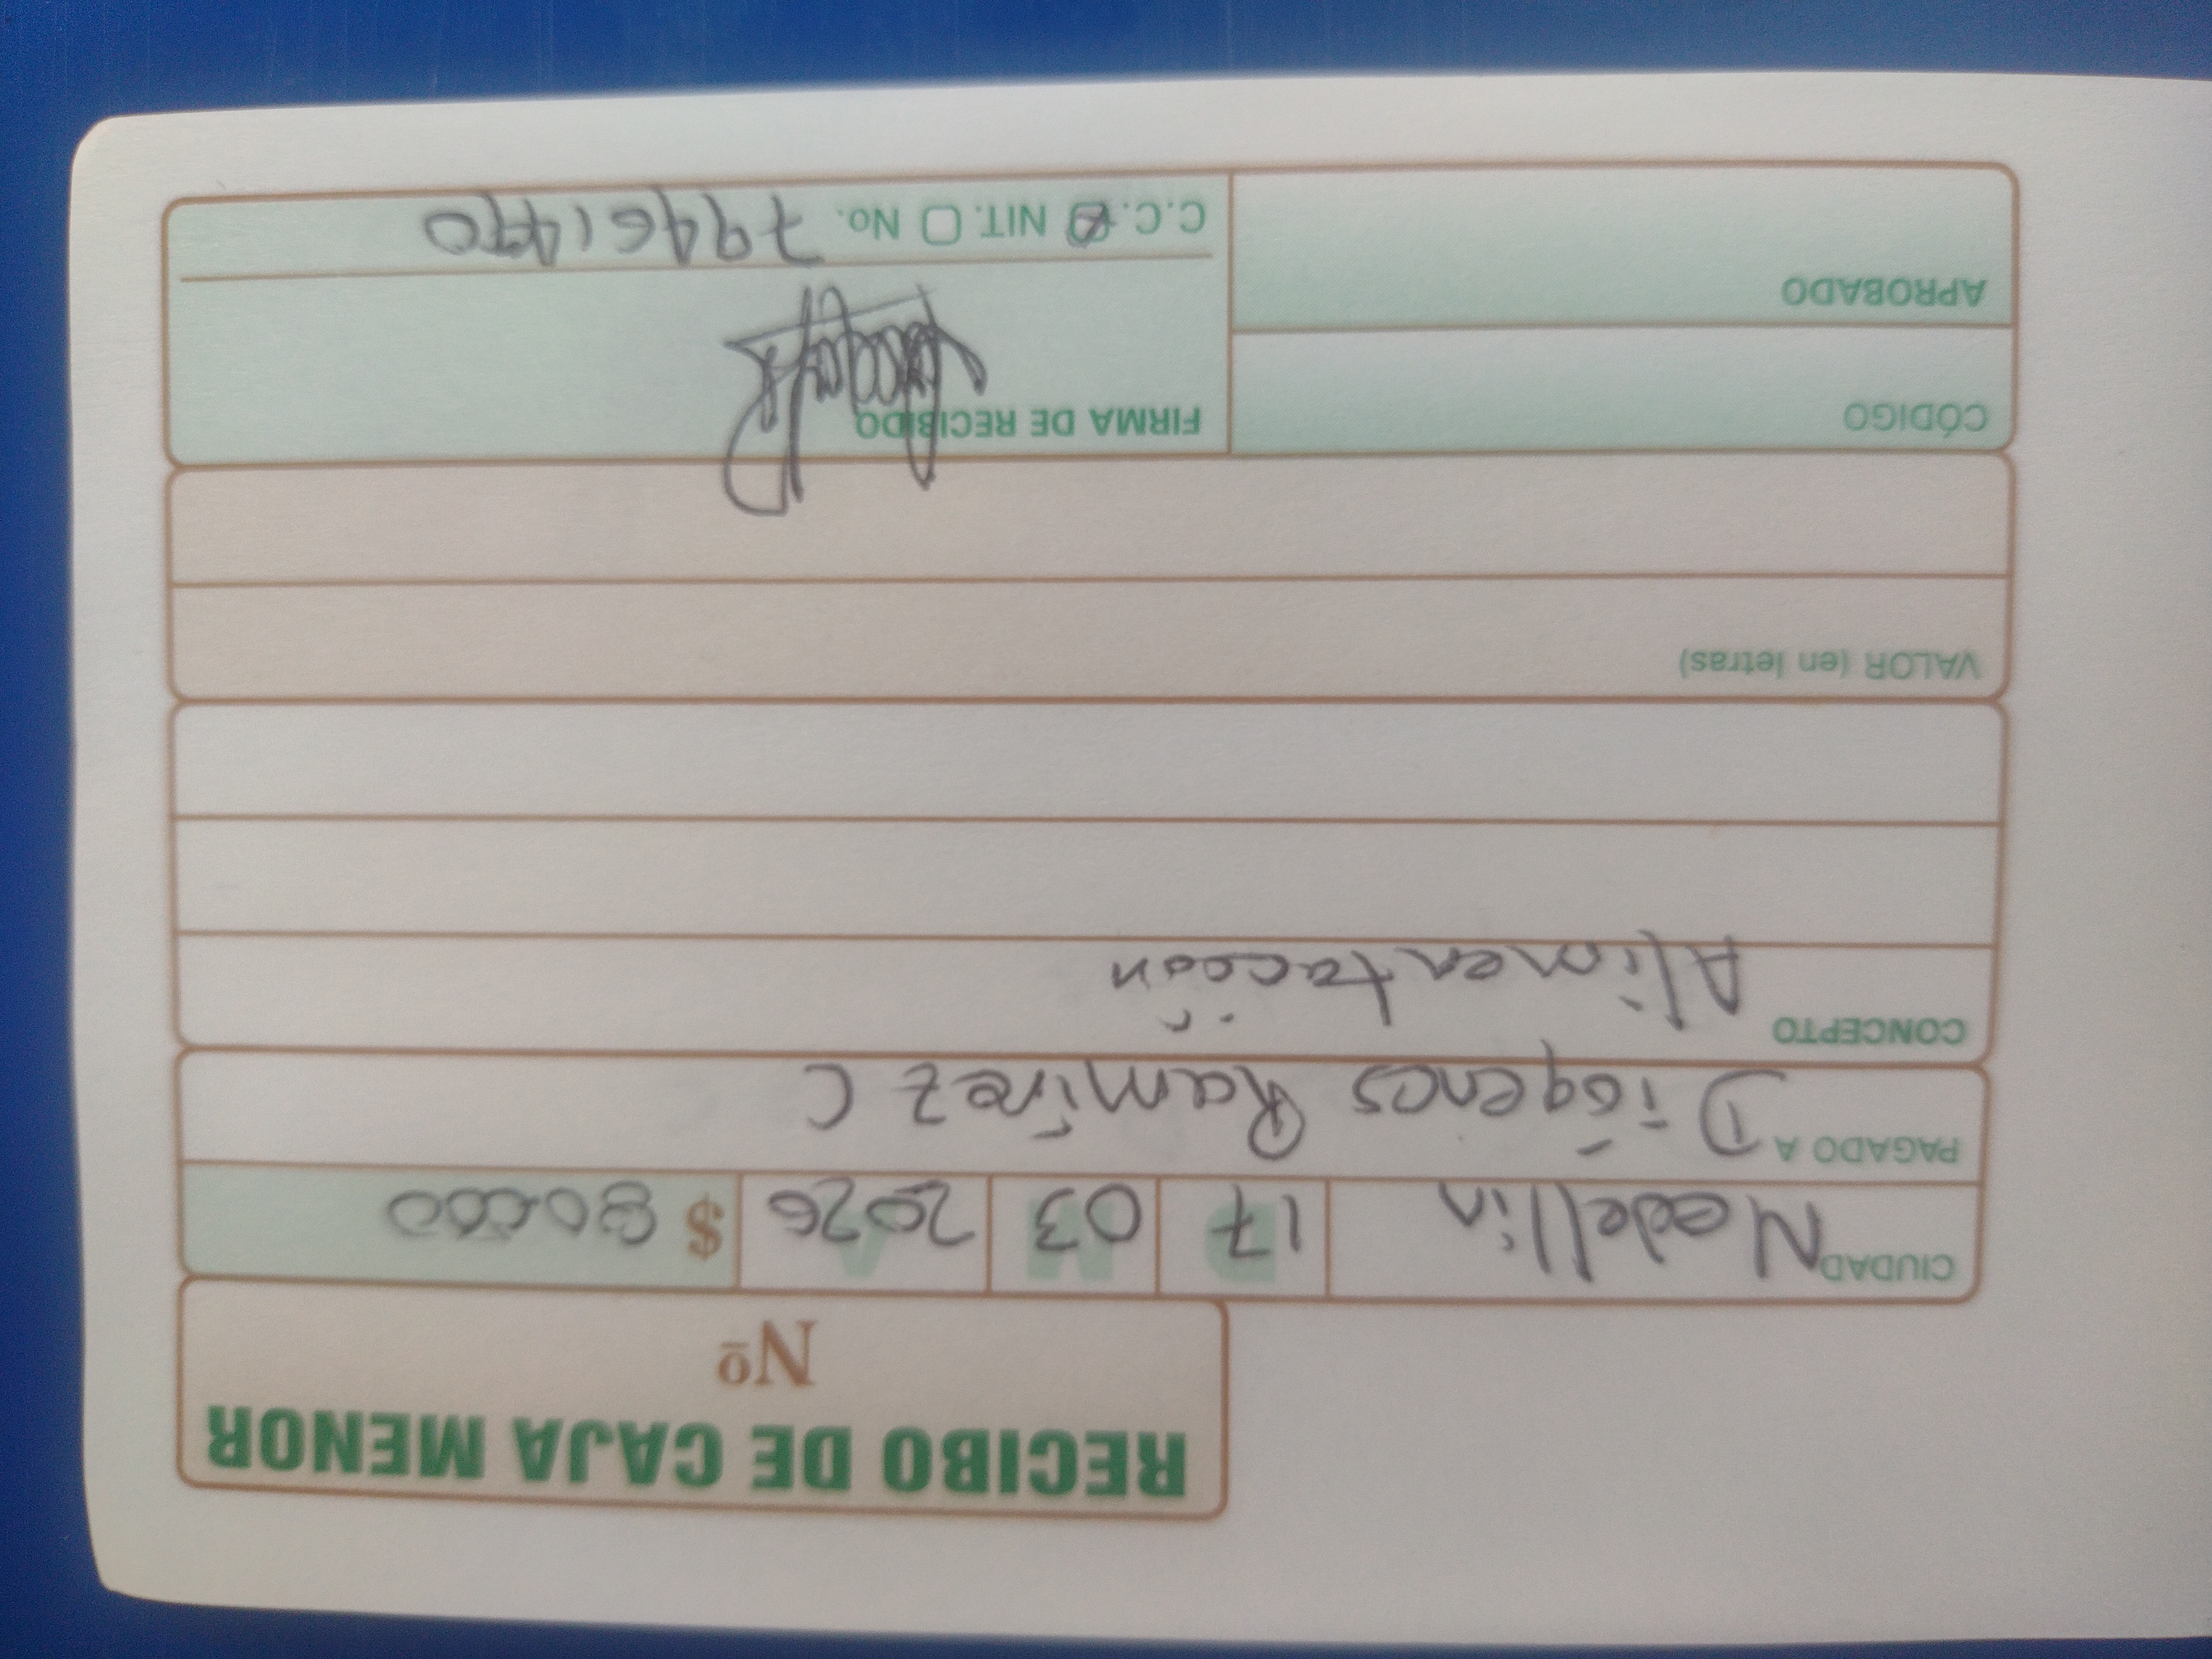 RECIBO DE CAJA MENOR
Nº
CIUDAD Medellin 17 03 2026 $ 80.000
PAGADO A Diógenes Ramírez C
CONCEPTO Alimentación
VALOR (en letras)
CÓDIGO FIRMA DE RECIBIDO
APROBADO
C.C. NIT. No. 79461490